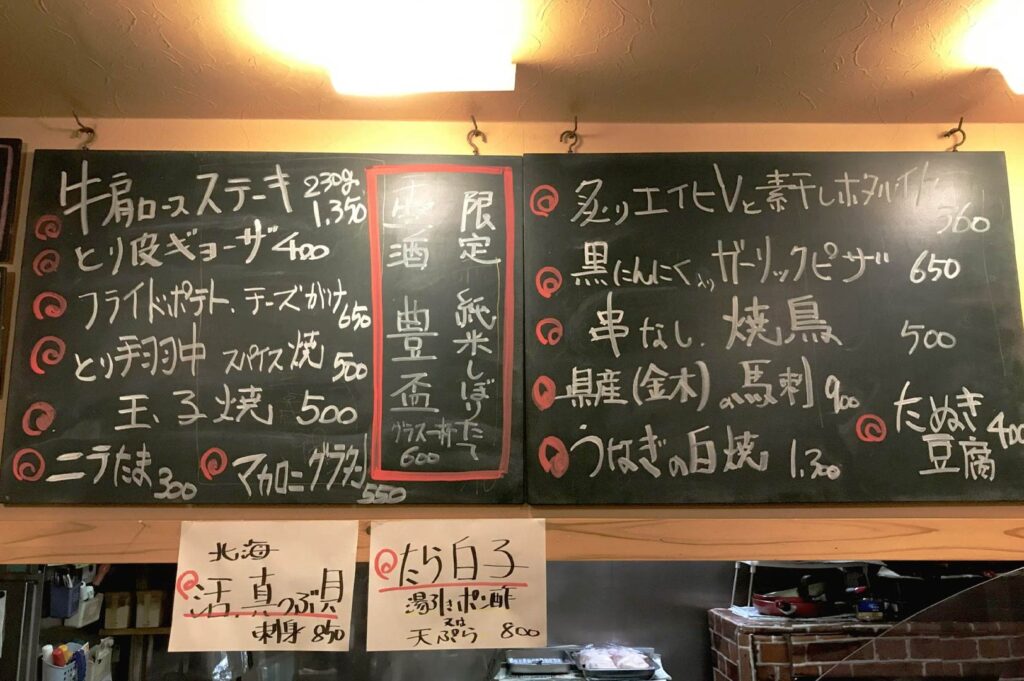 牛肩ロースステーキ 230g. 1,350
とり皮ギョーザ 400
フライドポテト、チーズがけ 650
とり手羽中 スパイス焼 500
玉子焼 500
ニラたま 300
マカロニグラタン 550
限定 純米しぼりたて
酒 豊盃 グラス一杯 600
炙りエイヒレと素干しホタルイカ 560
黒にんにく入りガーリックピザ 650
串なし. 焼鳥 500
県産(金木)の馬刺 900
うなぎの白焼 1,300
たぬき豆腐 400
北海
活真つぶ貝
刺身 850
たら白子
湯引きポン酢
又は
天ぷら 800